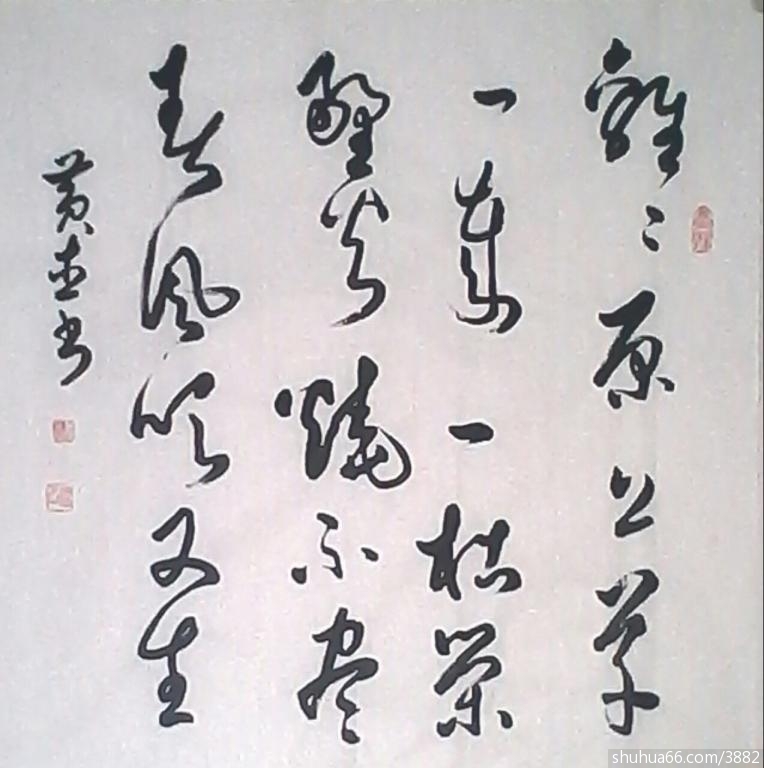 離〻原上草
一歲一枯榮
野火燒不盡
春風吹又生
黄書
shuhua66.com/3882